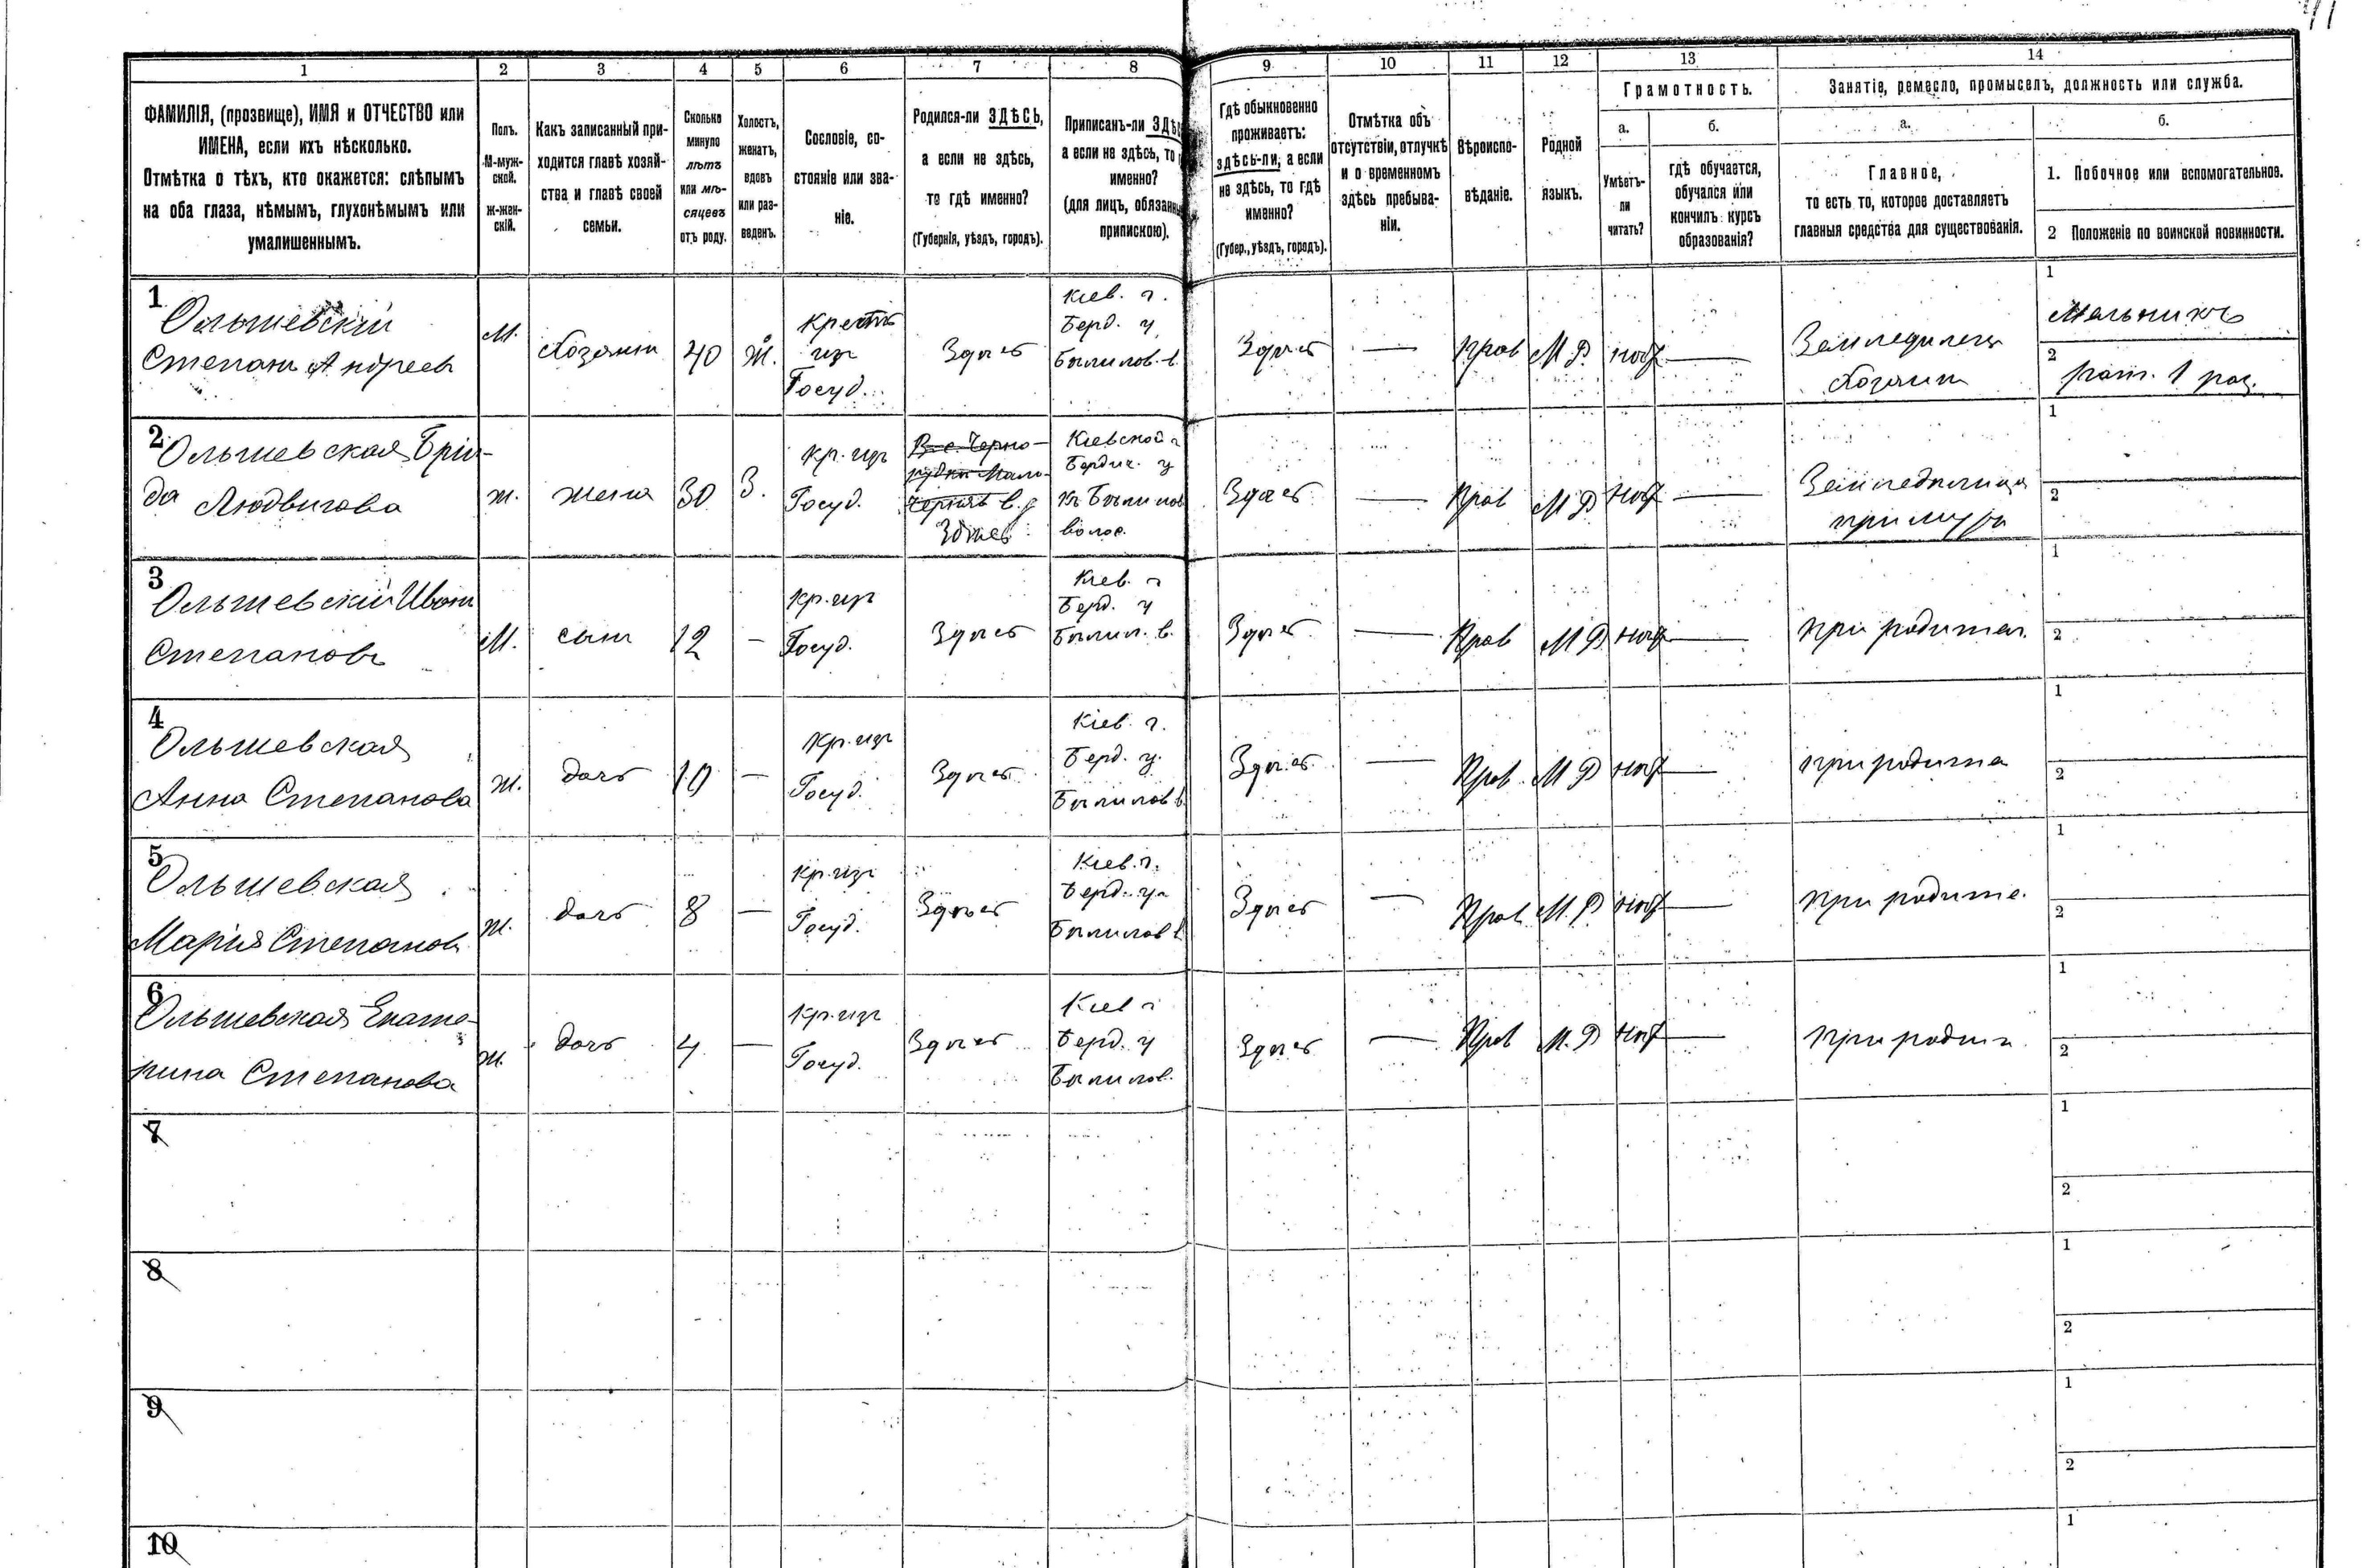 1 2 3 4 5 6 7 8 9 10 11 12 13 14
ФАМИЛІЯ, (прозвище), ИМЯ и ОТЧЕСТВО или
ИМЕНА, если ихъ нѣсколько.
Отмѣтка о тѣхъ, кто окажется: слѣпымъ
на оба глаза, нѣмымъ, глухонѣмымъ или
умалишеннымъ.
Полъ.
М-муж-
ской.
Ж-жен-
скій.
Какъ записанный при-
ходится главѣ хозяй-
ства и главѣ своей
семьи.
Сколько
минуло
лѣтъ
или мѣ-
сяцевъ
отъ роду.
Холостъ,
женатъ,
вдовъ
или раз-
веденъ.
Сословіе, со-
стояніе или зва-
ніе.
Родился-ли ЗДѢСЬ,
а если не здѣсь,
то гдѣ именно?
(Губернія, уѣздъ, городъ).
Приписанъ-ли ЗДѢ
а если не здѣсь, то
именно?
(для лицъ, обязанны
припискою).
Гдѣ обыкновенно
проживаетъ:
здѣсь-ли, а если
не здѣсь, то гдѣ
именно?
(Губер., уѣздъ, городъ).
Отмѣтка объ
отсутствіи, отлучкѣ
и о временномъ
здѣсь пребыва-
ніи.
Вѣроиспо-
вѣданіе.
Родной
языкъ.
Грамотность.
а.
Умѣетъ-
ли
читать?
б.
гдѣ обучается,
обучался или
кончилъ курсъ
образованія?
Занятіе, ремесло, промыселъ, должность или служба.
а.
Главное,
то есть то, которое доставляетъ
главныя средства для существованія.
б.
1. Побочное или вспомогательное.
2 Положеніе по воинской повинности.
1
Ольшевскій
Степанъ Андреевъ
М.
Хозяинъ
40
Ж.
Крестъ
изъ
Госуд.
Здѣсь
Кіев. г.
Берд. у
Былилов. в.
Здѣсь
—
Прав
М Р.
нѣт
—
Земледѣлецъ
Хозяинъ
1
Мельникъ
2
рат. 1 раз.
2
Ольшевская Бриги-
да Людвигова
ж.
жена
30
З.
Кр. изъ
Госуд.
Здѣсь
Кіевской г
Бердич. у
волос.
Здѣсь
—
Прав
М Р
нѣт
—
Земледѣлица
при мужѣ
1
2
3
Ольшевскій Иванъ
Степановъ
М.
сынъ
12
—
Кр. изъ
Госуд.
Здѣсь
Кіев. г
Берд. у
Былил. в.
Здѣсь
—
Прав
М Р
нѣт
—
при родител.
1
2
4
Ольшевская
Анна Степанова
ж.
дочь
10
—
Кр. изъ
Госуд.
Здѣсь
Кіев. г.
Берд. у.
Былилов в
Здѣсь
—
Прав.
М Р
нѣт
—
при родите
1
2
5
Ольшевская
Марія Степанов
ж.
дочь
8
—
Кр. изъ
Госуд.
Здѣсь
Кіев. г.
Берд. у.
Былилов в
Здѣсь
—
Прав
М. Р
нѣт
—
при родите.
1
2
6
Ольшевская Екате-
рина Степанова
ж.
дочь
4
—
Кр. изъ
Госуд.
Здѣсь
Кіев г
Берд. у
Былилов.
Здѣсь
—
Прав
М. Р
нѣт
—
при родит.
1
2
7
1
2
8
1
2
9
1
2
10
1